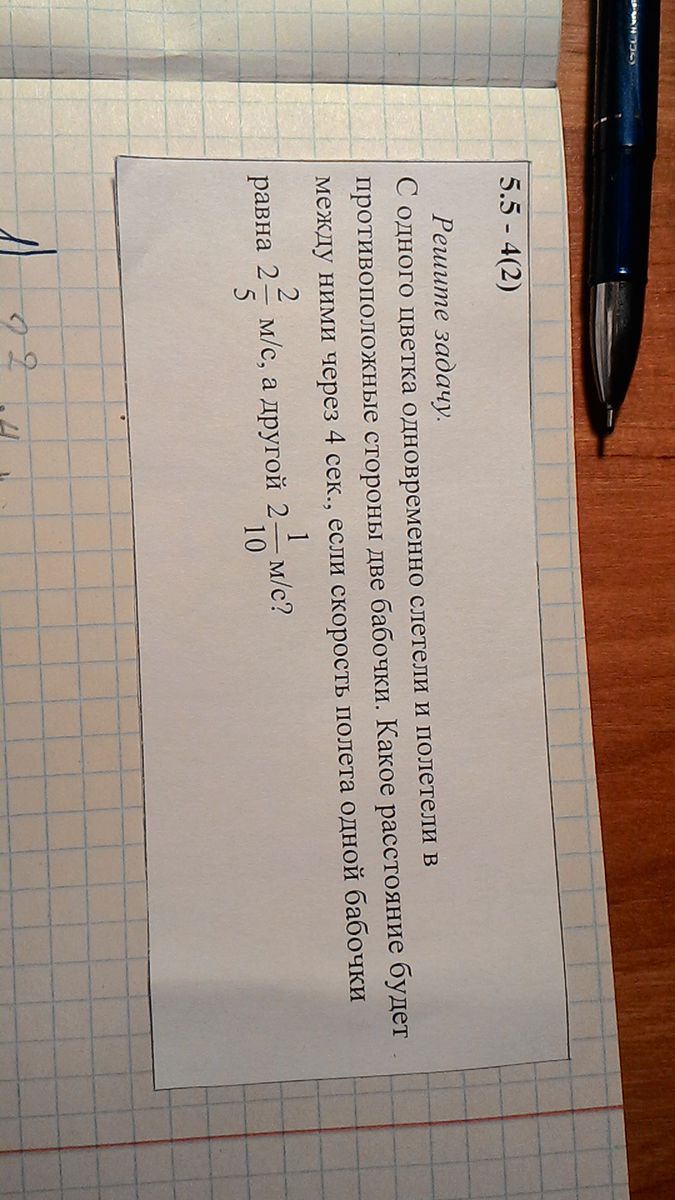 5.5 - 4(2)
Решите задачу.
С одного цветка одновременно слетели и полетели в
противоположные стороны две бабочки. Какое расстояние будет
между ними через 4 сек., если скорость полета одной бабочки
равна 2 2/5 м/с, а другой 2 1/10 м/с?